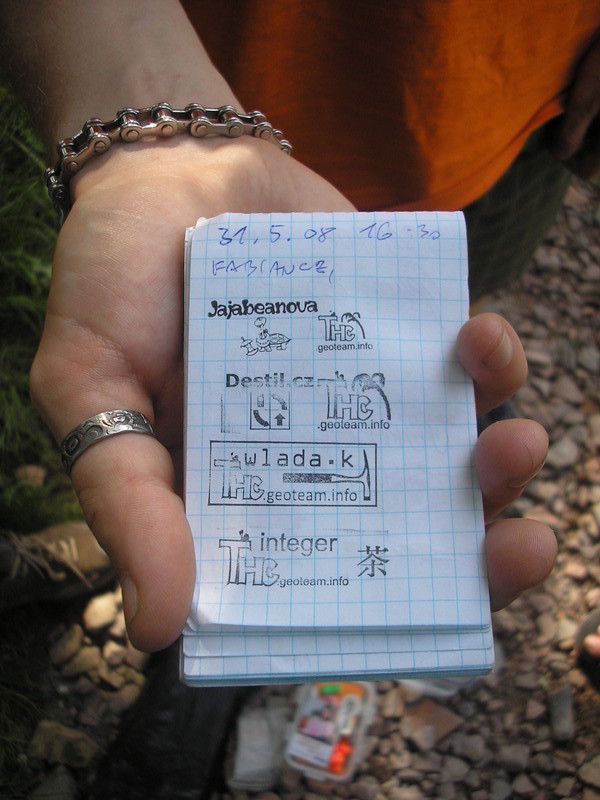 31.5.08 16:30
Jajabeanova
THC
geoteam.info
Destil.cz
THC
.geoteam.info
wlada.k
THC.geoteam.info
integer
THC.geoteam.info 茶